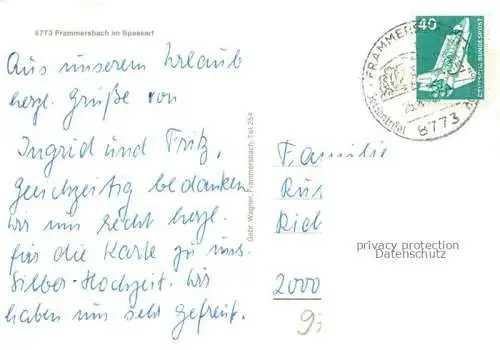 8773 Frammersbach im Spessart
Aus unserem Urlaub
herzl. Grüße von
Ingrid und Fritz,
Gleichzeitig bedanken
wir uns recht herzl.
für die Karte zu uns.
Silber-Hochzeit. Wir
haben uns sehr gefreut.
Gebr. Wagner, Frammersbach, Tel. 254
40
DEUTSCHE BUNDESPOST
FRAMMERS
8773
Familie
2000
privacy protection
Datenschutz